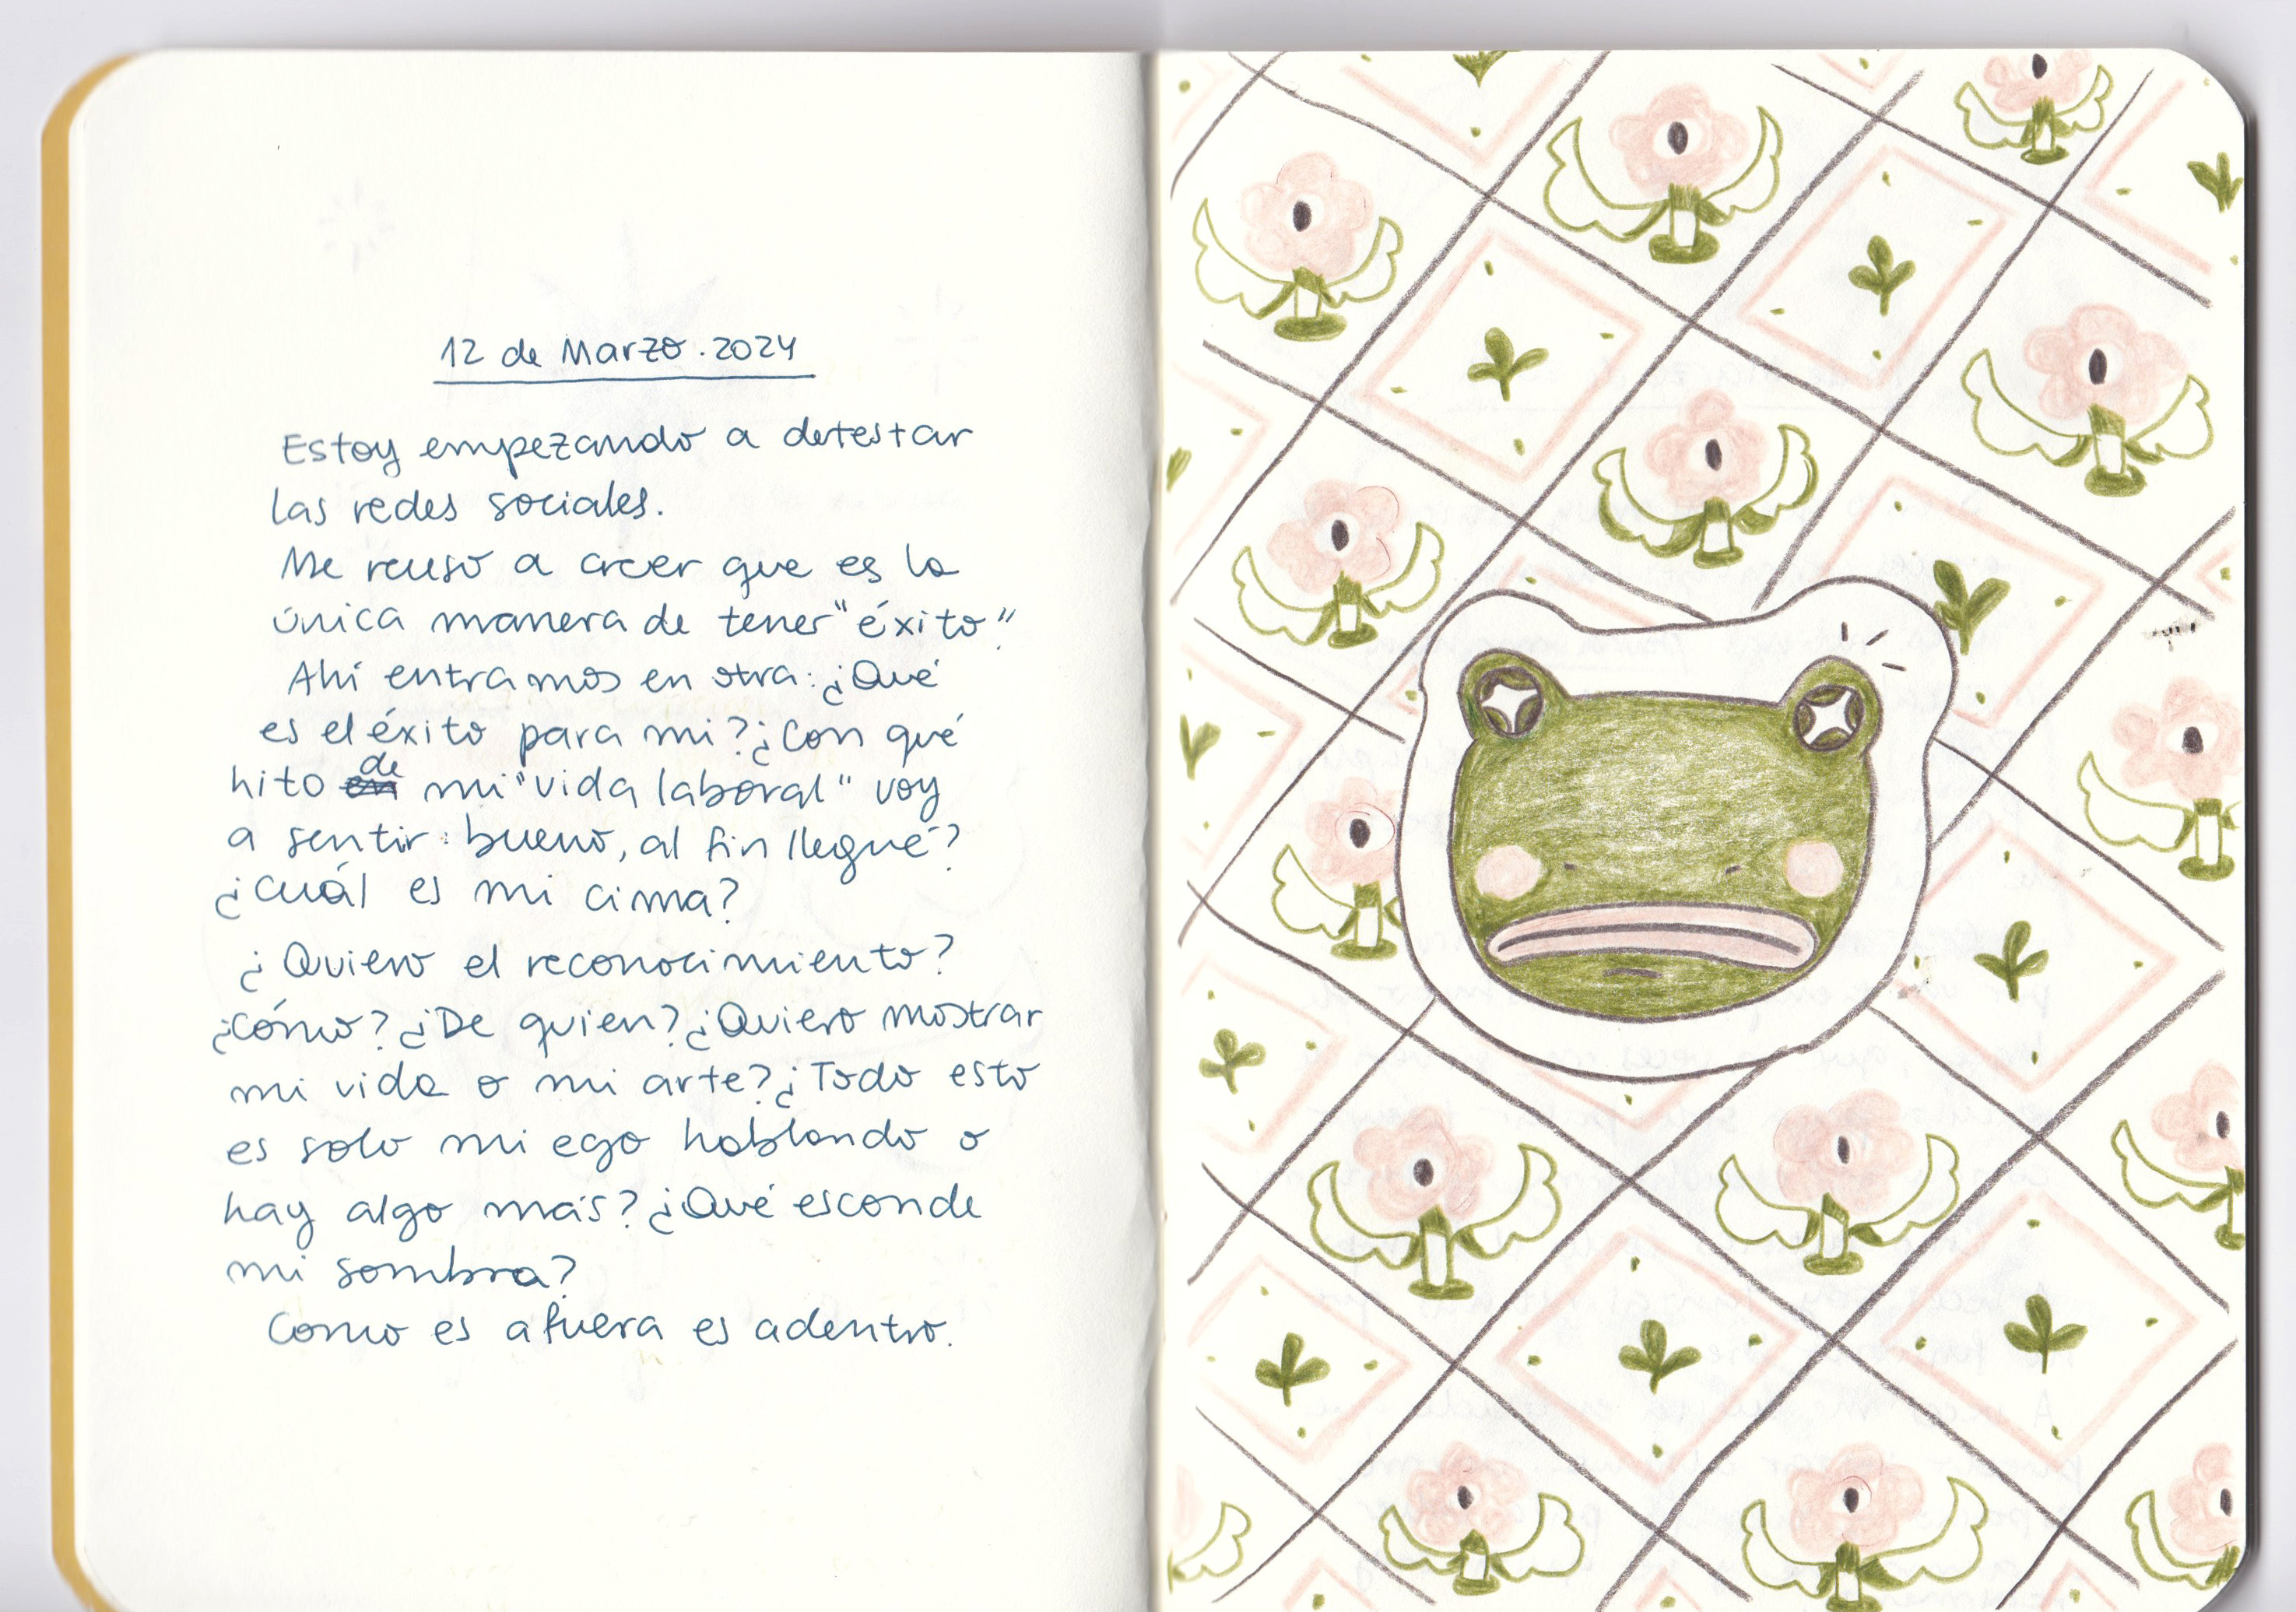 12 de Marzo. 2024
Estoy empezando a detestar
las redes sociales.
Me reuso a creer que es la
única manera de tener "éxito".
Ahí entramos en otra: ¿Qué
es el éxito para mi? ¿Con qué
hito de mi "vida laboral" voy
a sentir: bueno, al fin llegué?
¿Cuál es mi cima?
¿Quiero el reconocimiento?
¿Cómo? ¿De quien? ¿Quiero mostrar
mi vida o mi arte? ¿Todo esto
es solo mi ego hablando o
hay algo más? ¿Qué esconde
mi sombra?
Como es afuera es adentro.